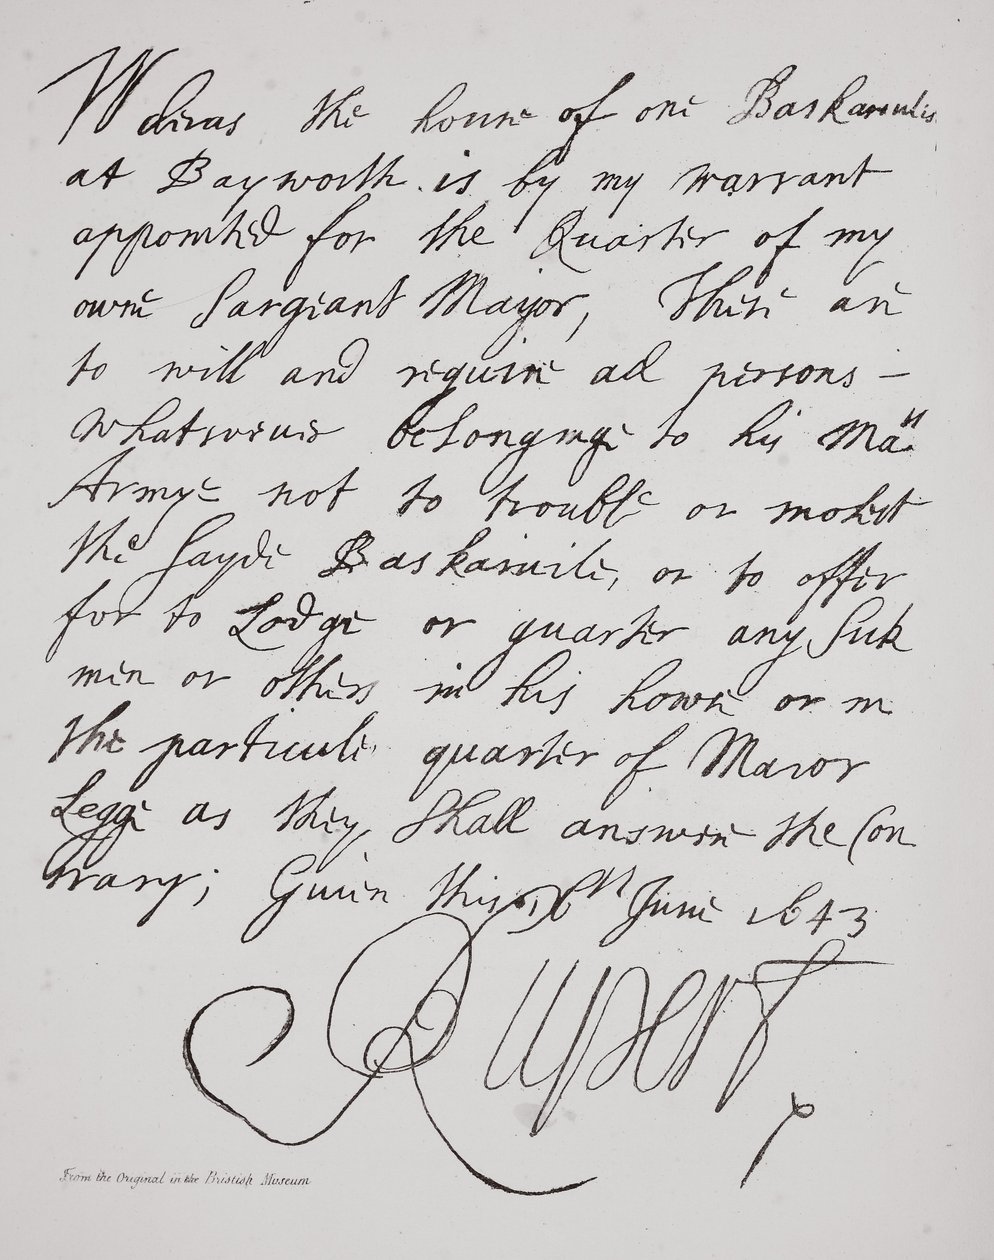 Wheras the house of one Baskarviles
at Bayworth is by my warrant
appointed for the Quarter of my
owne Sargeant Mayor, These are
to will and require all persons -
whatsoever belonginge to his Ma:ts
Armye not to trouble or molest
the sayde Baskarvile, or to offer
for to Lodge or quarter any Sick
men or others in his howse or in
the particuler quarter of Maior
Legge as they Shall answere the Con
trary; Given this th June 1643
Rupert
From the Original in the Bristish Museum